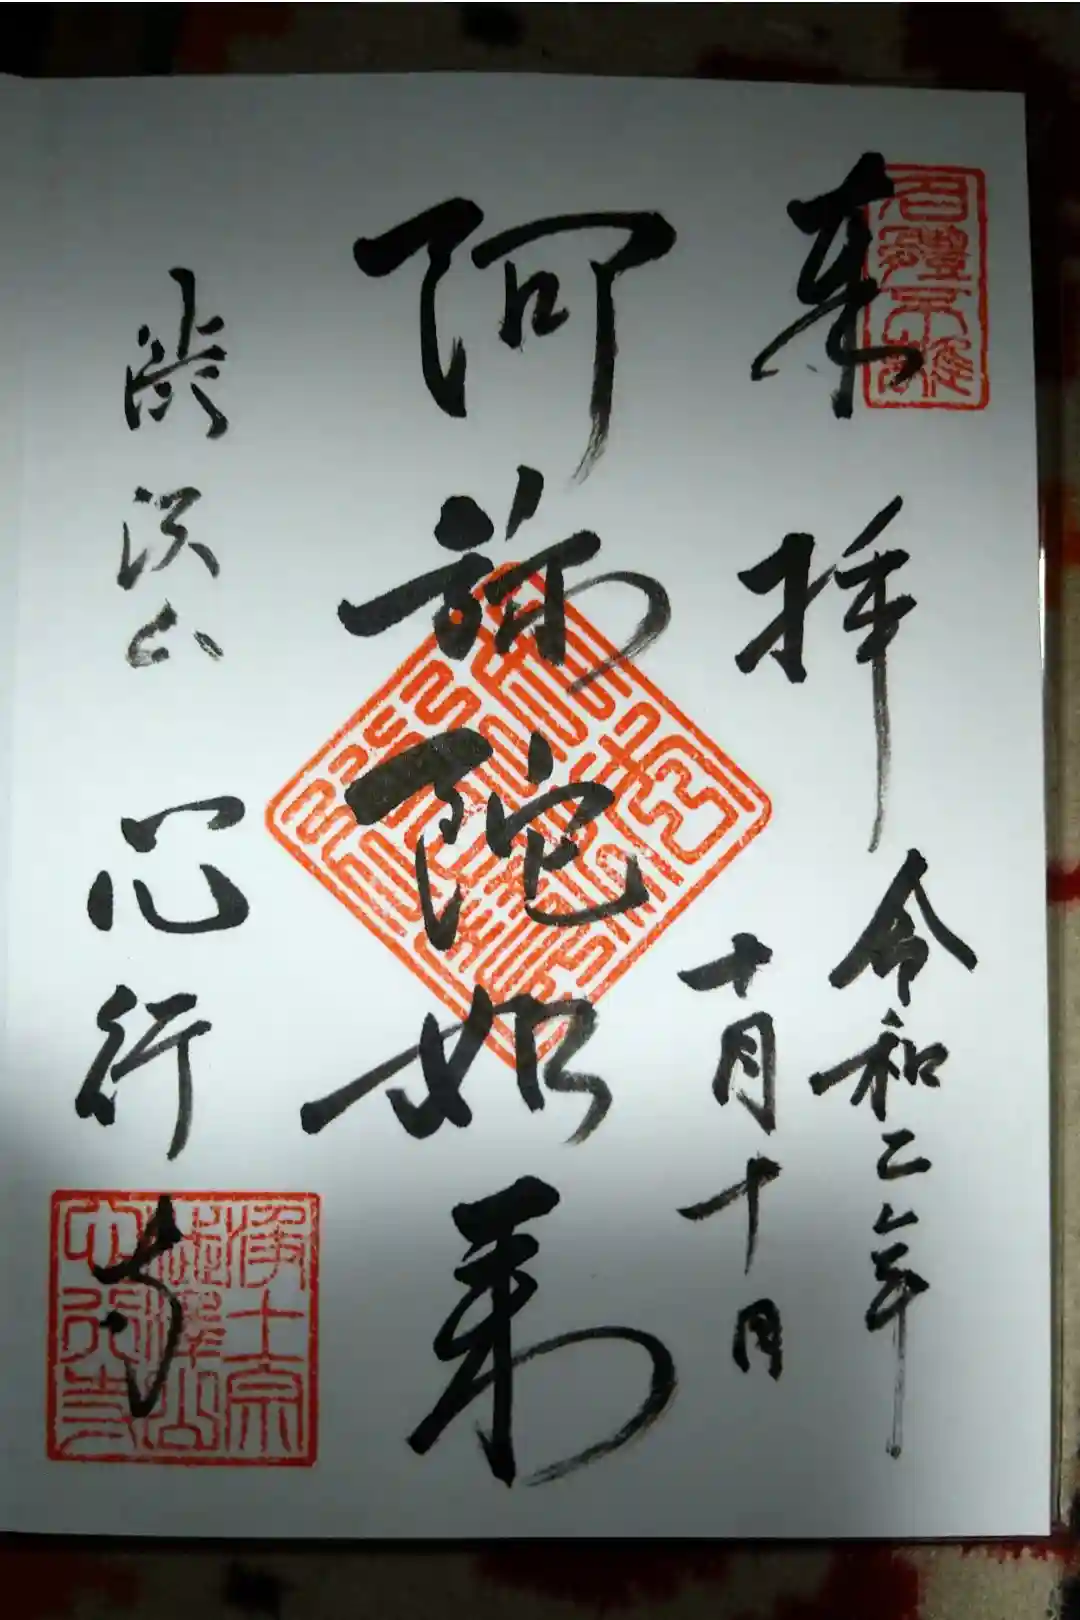 奉拝
令和二年
十月十日
阿弥陀如来
渋沢山 心行寺
浄土宗
澁澤山
心行寺